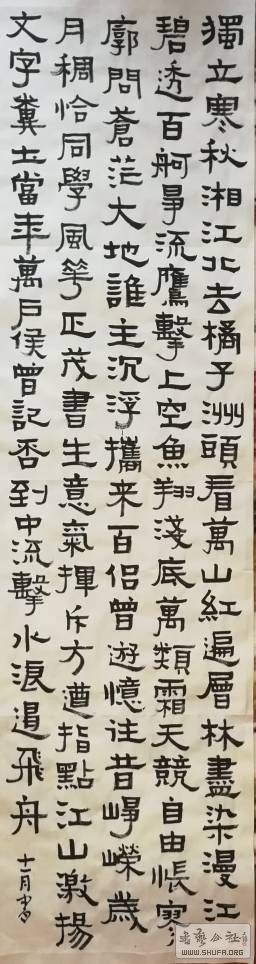 獨立寒秋湘江北去橘子洲頭看萬山紅遍層林盡染漫江
碧透百舸爭流鷹擊上空魚翔淺底萬類霜天競自由悵寥
廓問蒼茫大地誰主沉浮攜来百侶曾遊憶往昔崢嶸歲
月稠恰同學風華正茂書生意氣揮斥方遒指點江山激揚
文字糞土當年萬戶侯曾記否到中流擊水浪遏飛舟
公社
WWW.SHUFA.ORG